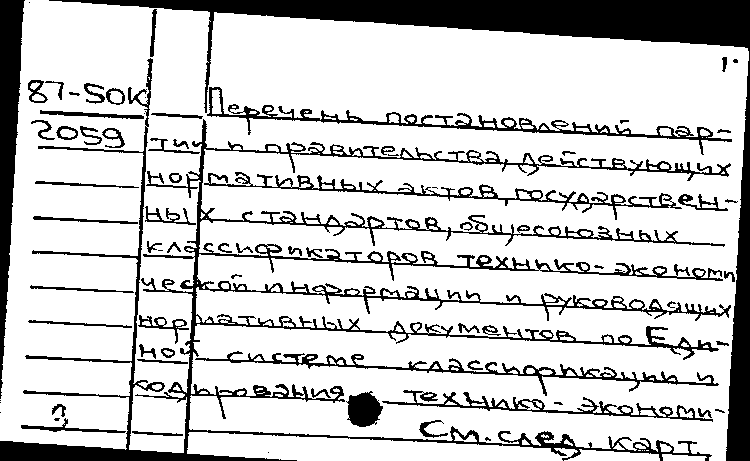 1.
87-5ОК Перечень постановлений пар-
2059 тии и правительства, действующих
нормативных актов, государствен-
ных стандартов, общесоюзных
классификаторов технико-экономи
ческой информации и руководящих
нормативных документов по Еди-
ной системе классификации и
кодирования технико-экономи-
См. след. карт.